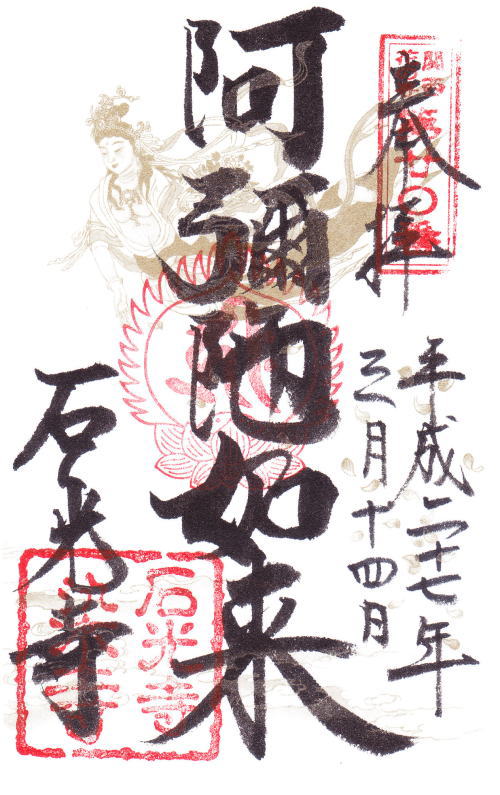 奉拝
平成二十七年
三月十四日
阿彌陀如来
石光寺
石光寺